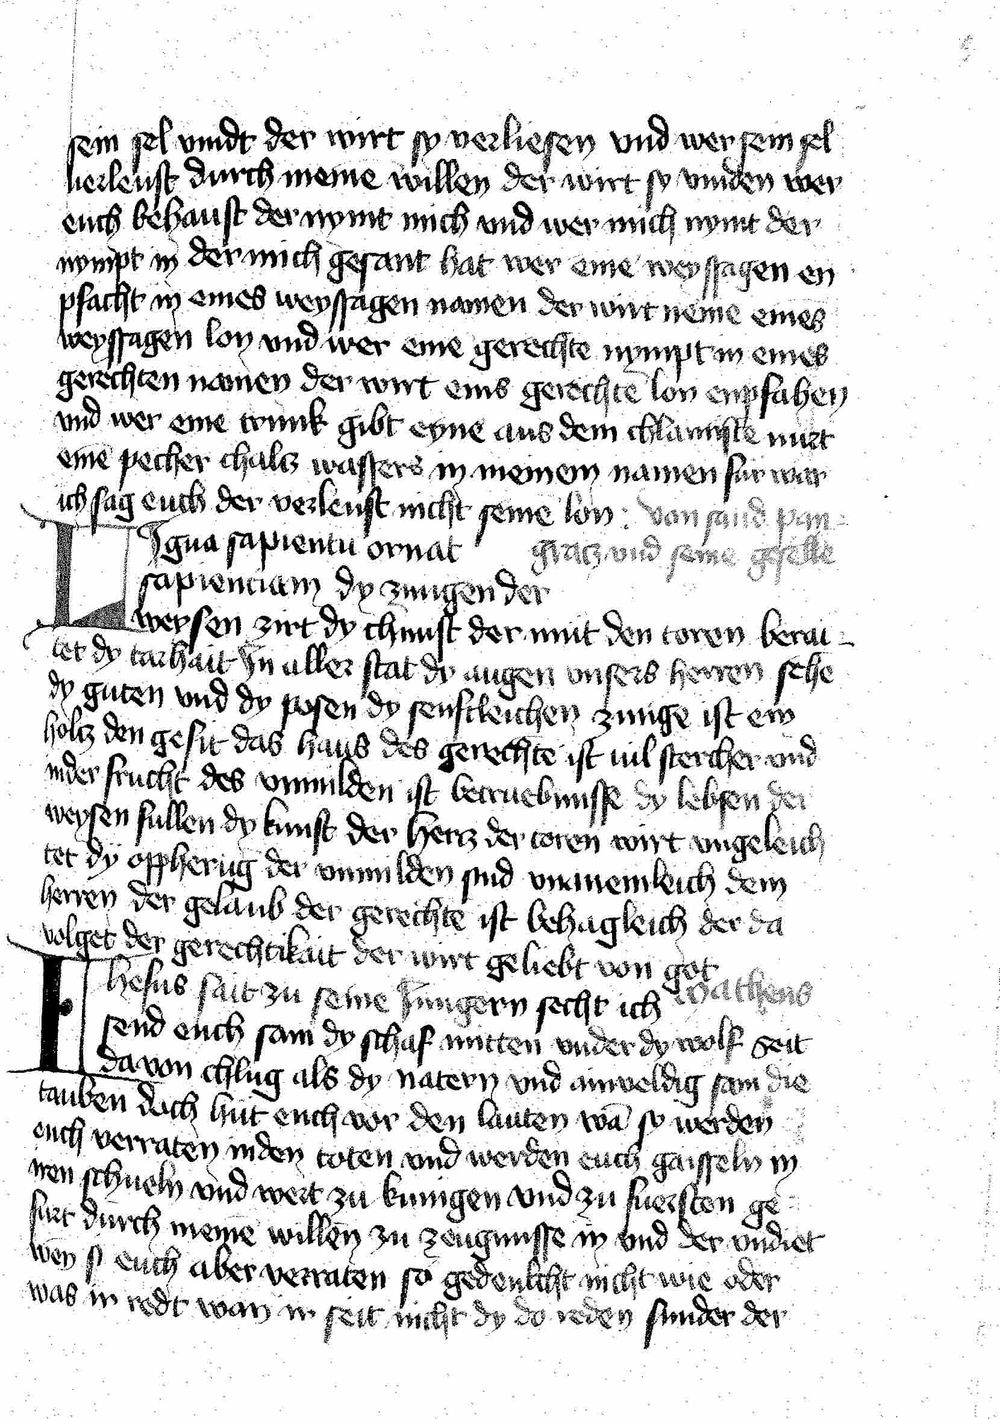 sein sel vindt der wirt sy verliesen vnd wer sein sel
verleust durch meine willen der wirt sy vinden wer
euch behaust der nymt mich vnd wer mich nymt der
nympt in der mich gesant hat wer eine weyssagen en
pfacht in eines weyssagen namen der wirt neme eines
weyssagen lon vnd wer eine gerechte nympt in eines
gerechten namen der wirt eins gerechte lon enpfahen
vnd wer eine trunk gibt eyne aus dem chlainiste nurt
eine pecher chalz wassers in meinem namen fur war
ich sag euch der verleust nicht seine lon : von sand pan
LIgua sapientu ornat gratz vnd seine geselle
sapienciam dy zungen der
weysen zirt dy chunst der mut den toren berai
tet dy tarhait In aller stat dy augen vnsers herren sehe
dy guten vnd dy posen dy senftleichen zunge ist ein
holtz den gesit das haus des gerechte ist vil stercher vnd
inder frucht des vnmilden ist betruebnusse dy lebsen der
weysen fullen dy kunst der hertz der toren wirt vngeleich
tet dy oppherug der vnmilden sind vnanemleich dem
herren der gelaub der gerechte ist behagleich der da
volget der gerechtikait der wirt geliebt von got
Ihesus sait zu seine Iungern secht ich Matheus
send euch sam dy schaf mitten vnder dy wolf seit
da von chlug als dy natern vnd ainveldig sam die
tauben doch hut euch vor den lauten wā sy werden
euch verraten inden toten vnd werden euch gaisseln in
iren schueln vnd wert zu kunigen vnd zu fuersten ge
furt durch meine willen zu zeugnusse in vnd der vndiet
wen si euch aber verraten so gedenkcht nicht wie oder
was ir redt wan ir seit nicht dy do reden sunder der